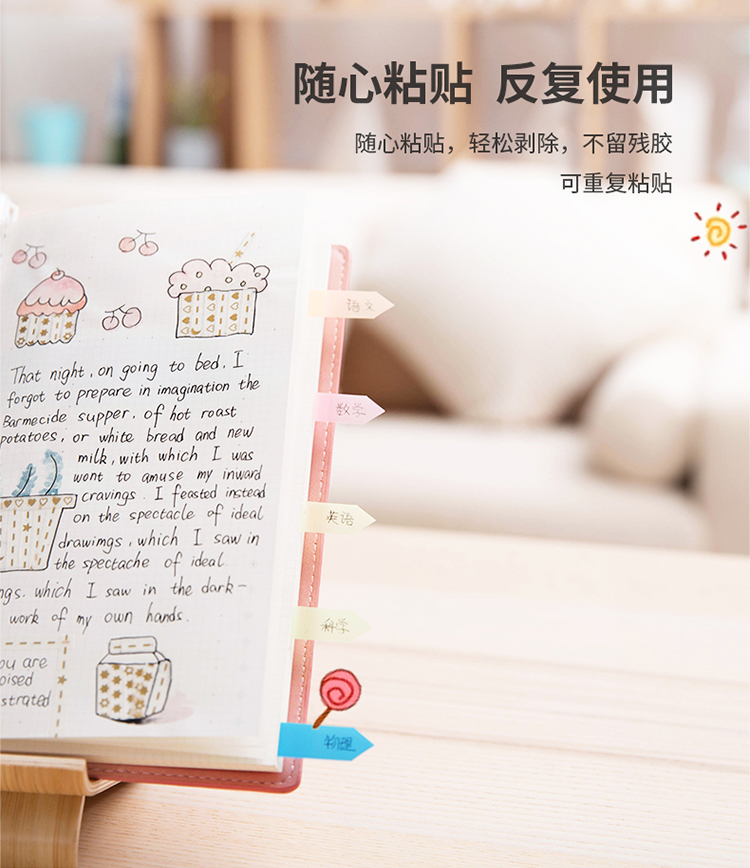 随心粘贴 反复使用
随心粘贴，轻松剥除，不留残胶
可重复粘贴
语文
数学
英语
科学
物理
That night, on going to bed, I
forgot to prepare in imagination the
Barmecide supper. of hot roast
potatoes, or white bread and new
milk, with which I was
wont to amuse my inward
cravings. I feasted instead
on the spectacle of ideal
drawimgs, which I saw in
the spectache of ideal
ngs. which I saw in the dark-
work of my own hands.
ou are
oised
strated